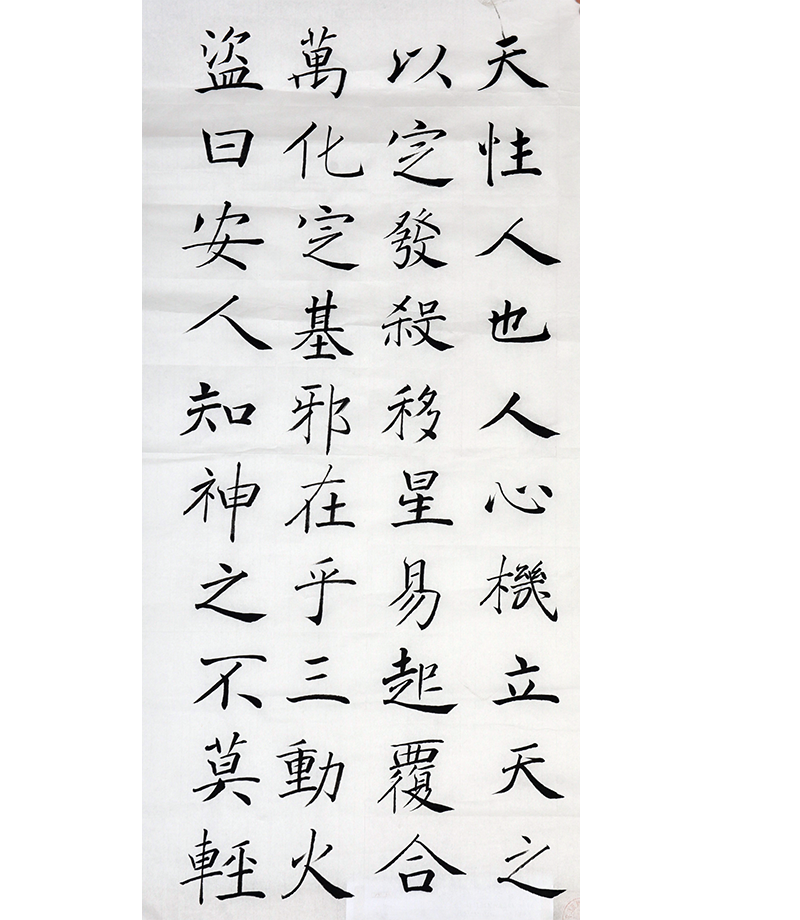 天性人也人心機立天之
以定發殺移星易起覆合
萬化定基邪在乎三動火
盜曰安人知神之不莫輕